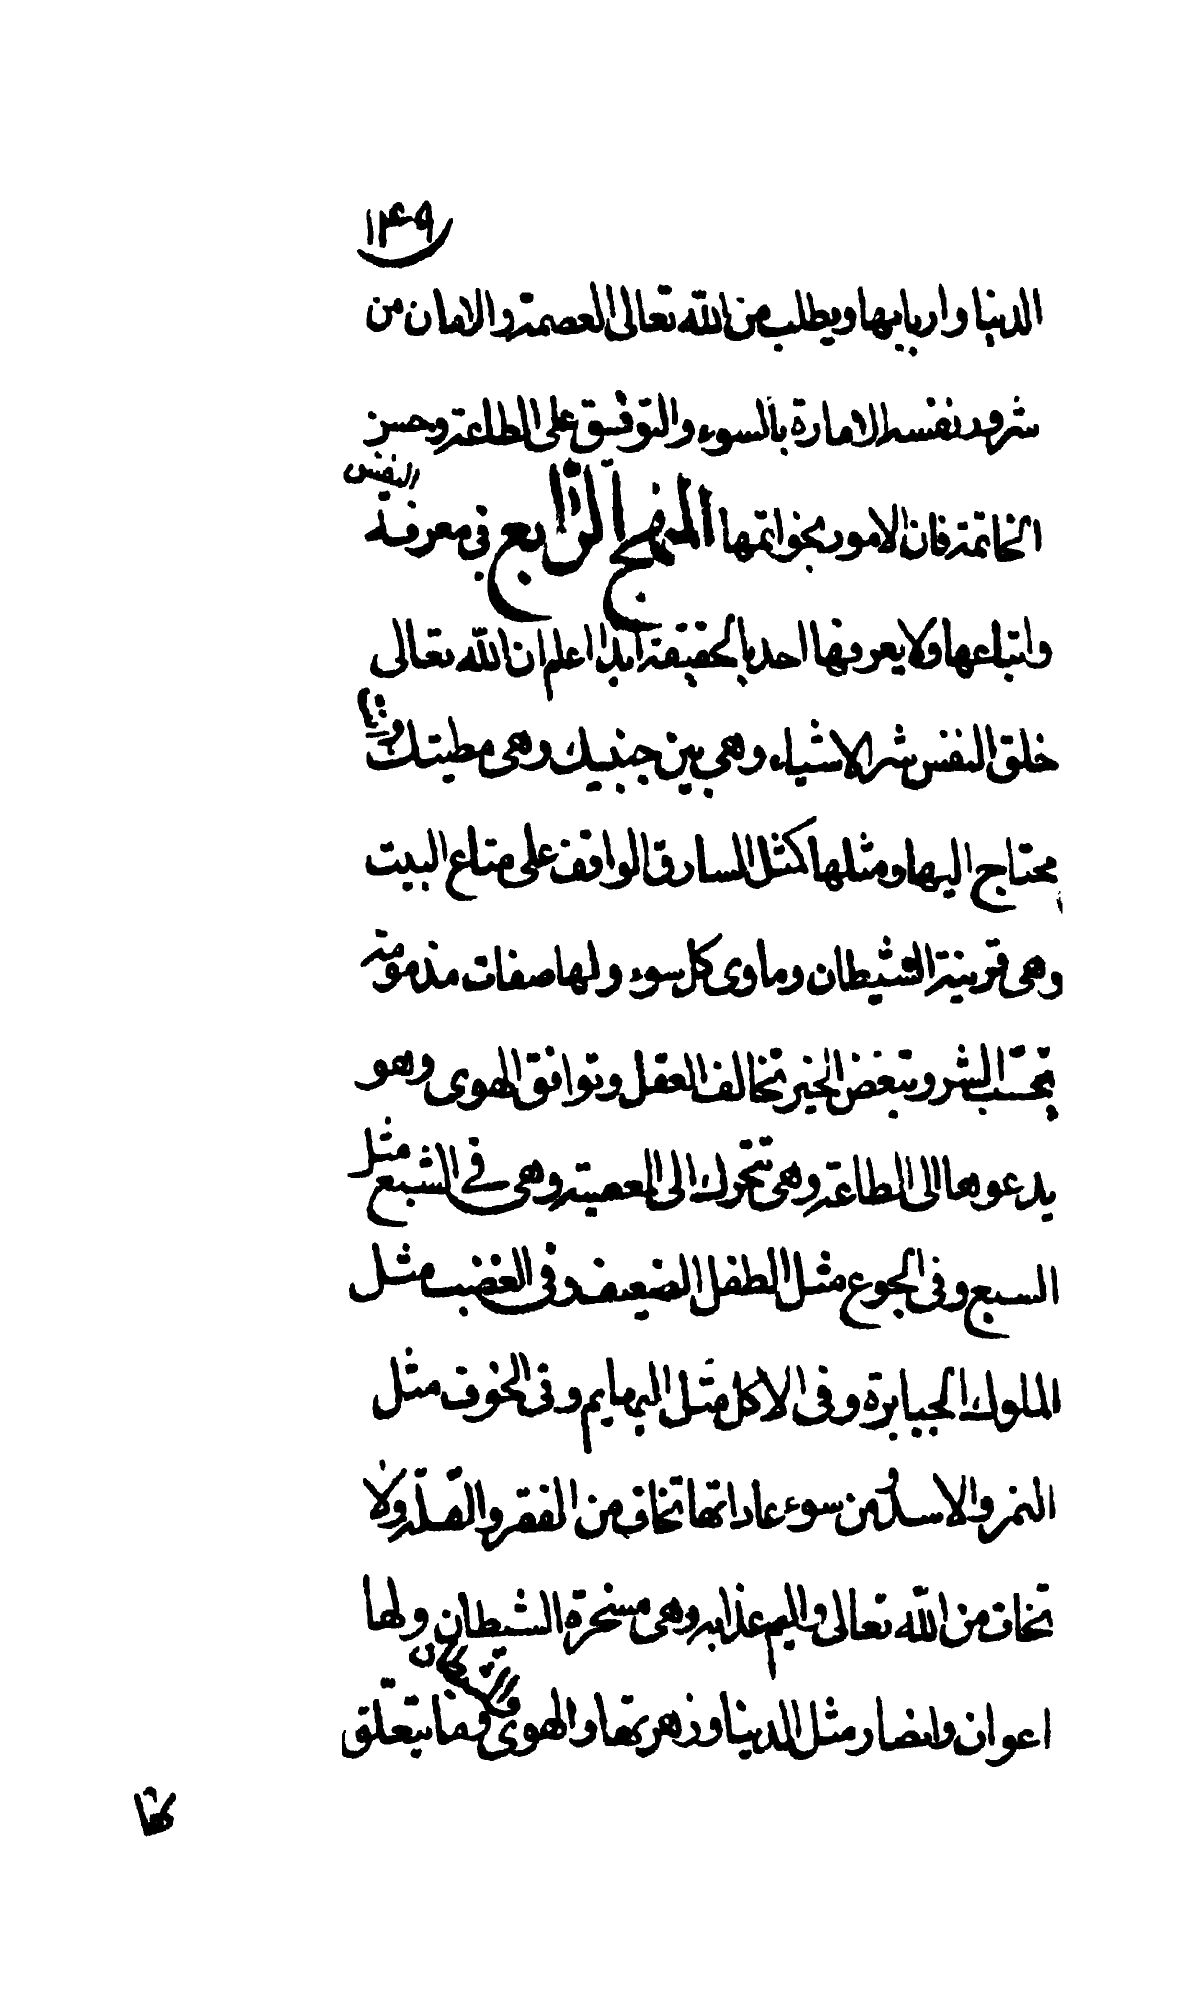 ١٤٩
الدنيا واربابها ويطلب من الله تعالى العصمة والامان من
شرور نفسه الامارة بالسوء والتوفيق على الطاعة وحسن
الخاتمة فان الامور بخواتمها المنهج الرابع في معرفة النفس
واتباعها ولا يعرفها احد بالحقيقة ابدا اعلم ان الله تعالى
خلق النفس شر الاشياء وهي بين جنبيك وهي مطيتك وانت
محتاج اليها ومثلها كمثل السارق الواقف على متاع البيت
وهي قرينة الشيطان وماوى كل سوء ولها صفات مذمومة
تحب الشر وتبغض الخير تخالف العقل وتوافق الهوى وهو
يدعوها الى الطاعة وهي تتحرك الى المعصية وهي في الشبع مثل
السبع وفي الجوع مثل الطفل الضعيف وفي الغضب مثل
الملوك الجبابرة وفي الاكل مثل البهايم وفي الخوف مثل
النمر والاسد ومن سوء عاداتها تخاف من الفقر والقلة ولا
تخاف من الله تعالى واليم عذابه وهي مسخرة الشيطان ولها
اعوان وانصار مثل الدنيا وزهرتها والهوى والشيطان فما تتعلق